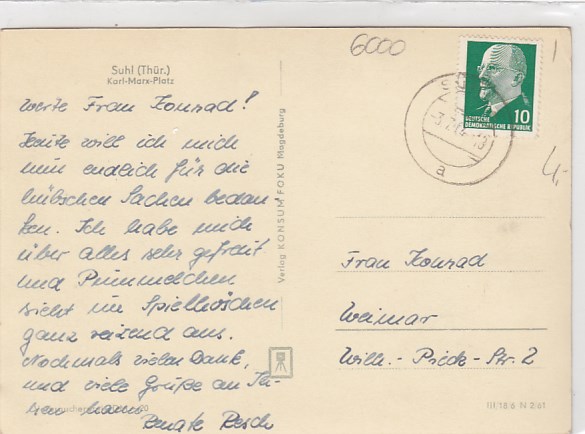 6000
Suhl (Thür.)
Karl-Marx-Platz
Werte Frau Konrad!
Heute will ich mich
nun endlich für die
hübschen Sachen bedan
ken. Ich habe mich
über alles sehr gefreut
und Pummelchen
sieht im Spielhöschen
ganz reizend aus.
Nochmals vielen Dank,
und viele Grüße an Ih-
ren
Renate Resch
Verlag KONSUM FOKU Magdeburg
DEUTSCHE
DEMOKRATISCHE REPUBLIK
10
a
4,-
Frau Konrad
Weimar
Wilh.-Pieck-Str. 2
III/18/6 N 2/61